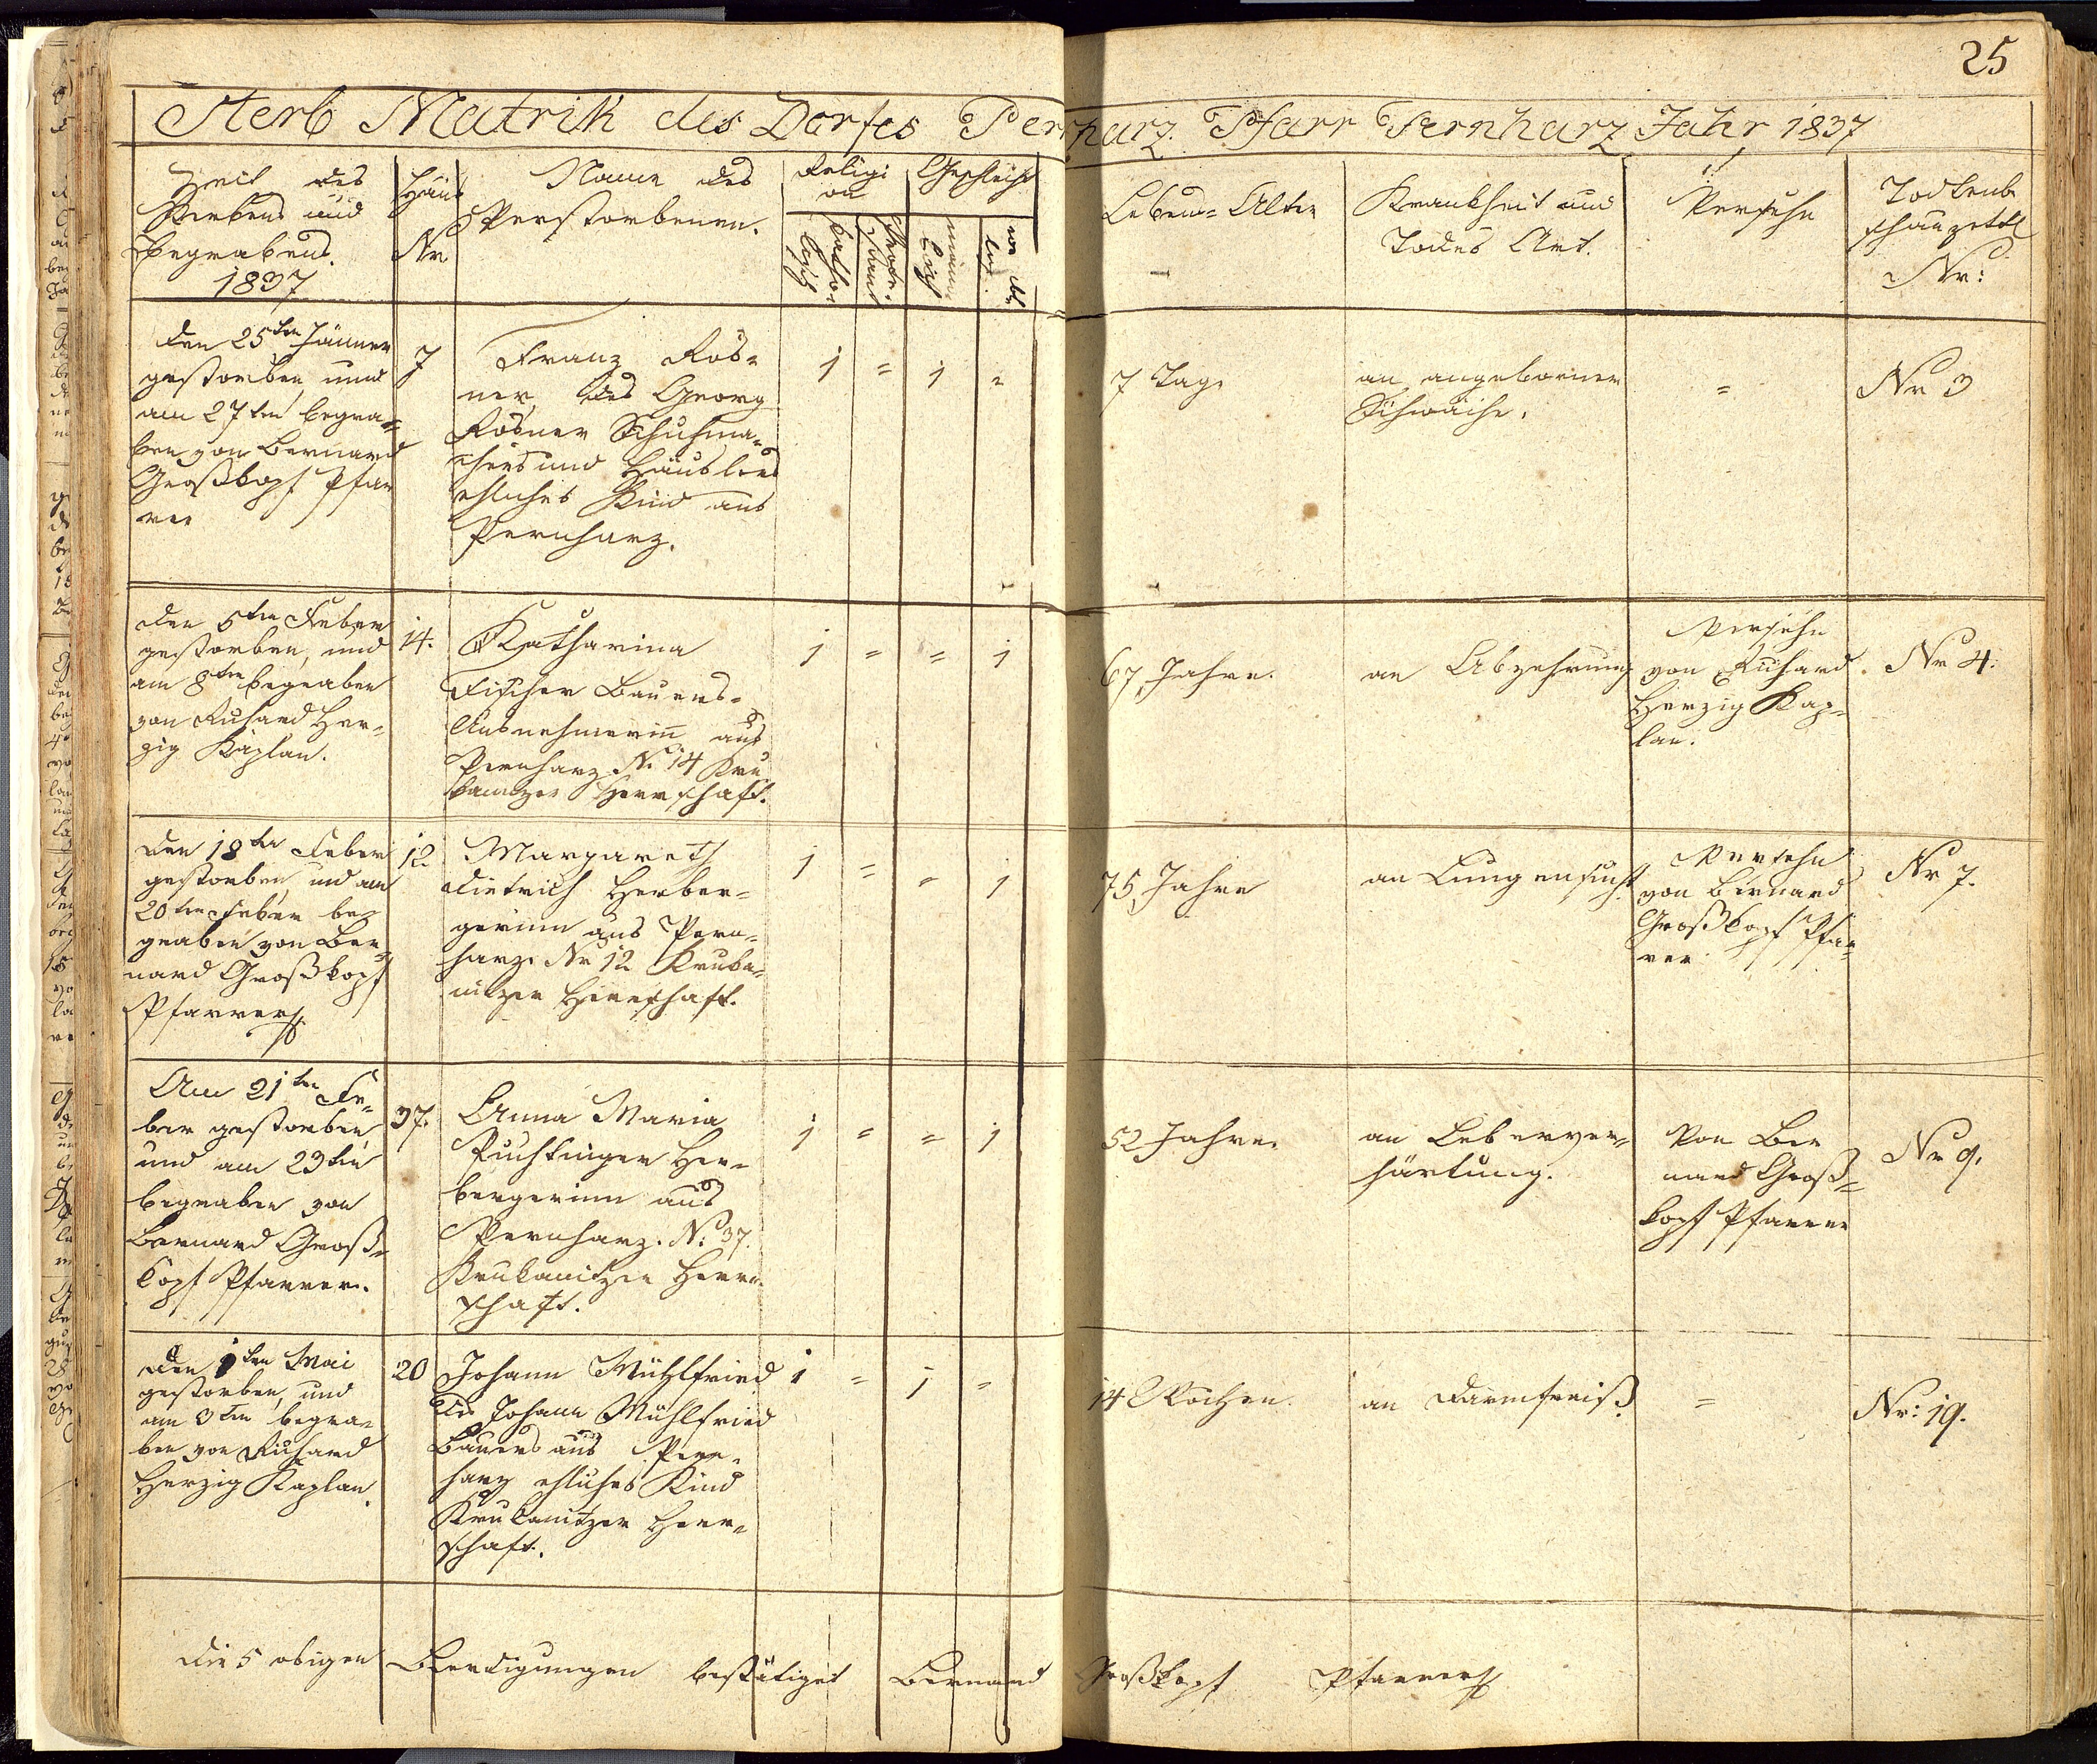 25
Sterb Matrik des Dorfes Pernharz. Pfarr Pernharz Jahr 1837
Zeit des
Sterbens und
Begrabens.
1837
Haus
Nr
Name des
Verstorbenen.
Religi
on
katho-
lisch
Geschlecht
männ-
lich
weib
lich
Lebens-Alter
Krankheit und
Todes Art.
Versehn
Todtenbe
schauzettl
Nr:
Den 25ten Jänner
gestorben und
am 27ten begra-
ben von Bernard
Großkopf Pfar
rer
7
Franz Rös-
ner, des Georg
Rösner Schuhma-
chers und Häuslers
ehliches Kind aus
Pernharz.
1 = 1 =
7 Tage
an angeborner
Schwäche.
=
Nr 3
Den 5ten Feber
gestorben, und
am 8ten begraben
von Richard Her-
zig Kaplan.
14.
Katharina
Fischer Bauers-
Ausnehmerin aus
Pernharz No 14 Kru
kanitzer Herrschaft.
1 = = 1
67 Jahre.
an Abzehrung
Versehn
von Richard
Herzig Kap-
lan.
Nr 4.
Den 18ten Feber
gestorben, und am
20ten Feber be-
graben von Ber-
nard Großkopf
Pfarrer
12
Margareth
Dietrich Herber-
gerinn aus Pern-
harz. Nr 12 Kruka-
nitzer Herrschaft.
1 = = 1
75 Jahre
an Lungensucht.
Versehn
von Bernard
Großkopf Pfar-
rer
Nr 7.
Am 21ten Fe-
ber gestorben
und am 23ten
begraben von
Bernard Groß-
kopf Pfarrer.
37.
Anna Maria
Puchtinger Her-
bergerinn aus
Pernharz. No 37.
Krukanitzer Herr-
schaft.
1 = = 1
52 Jahre.
an Leberver-
härtung.
Von Ber
nard Groß-
kopf Pfarrer
Nr 9.
Den 1ten Mai
gestorben, und
am 3ten begra-
ben von Richard
Herzig Kaplan.
20
Johann Mühlfried
des Johann Mühlfried
Bauers aus Pern-
harz ehliches Kind
Krukanitzer Herr-
schaft.
1 = 1 =
14 Wochen.
an Darmfreiß.
=
Nr: 19.
Die 5 obigen Beerdigungen bestätiget Bernard Großkopf Pfarrer